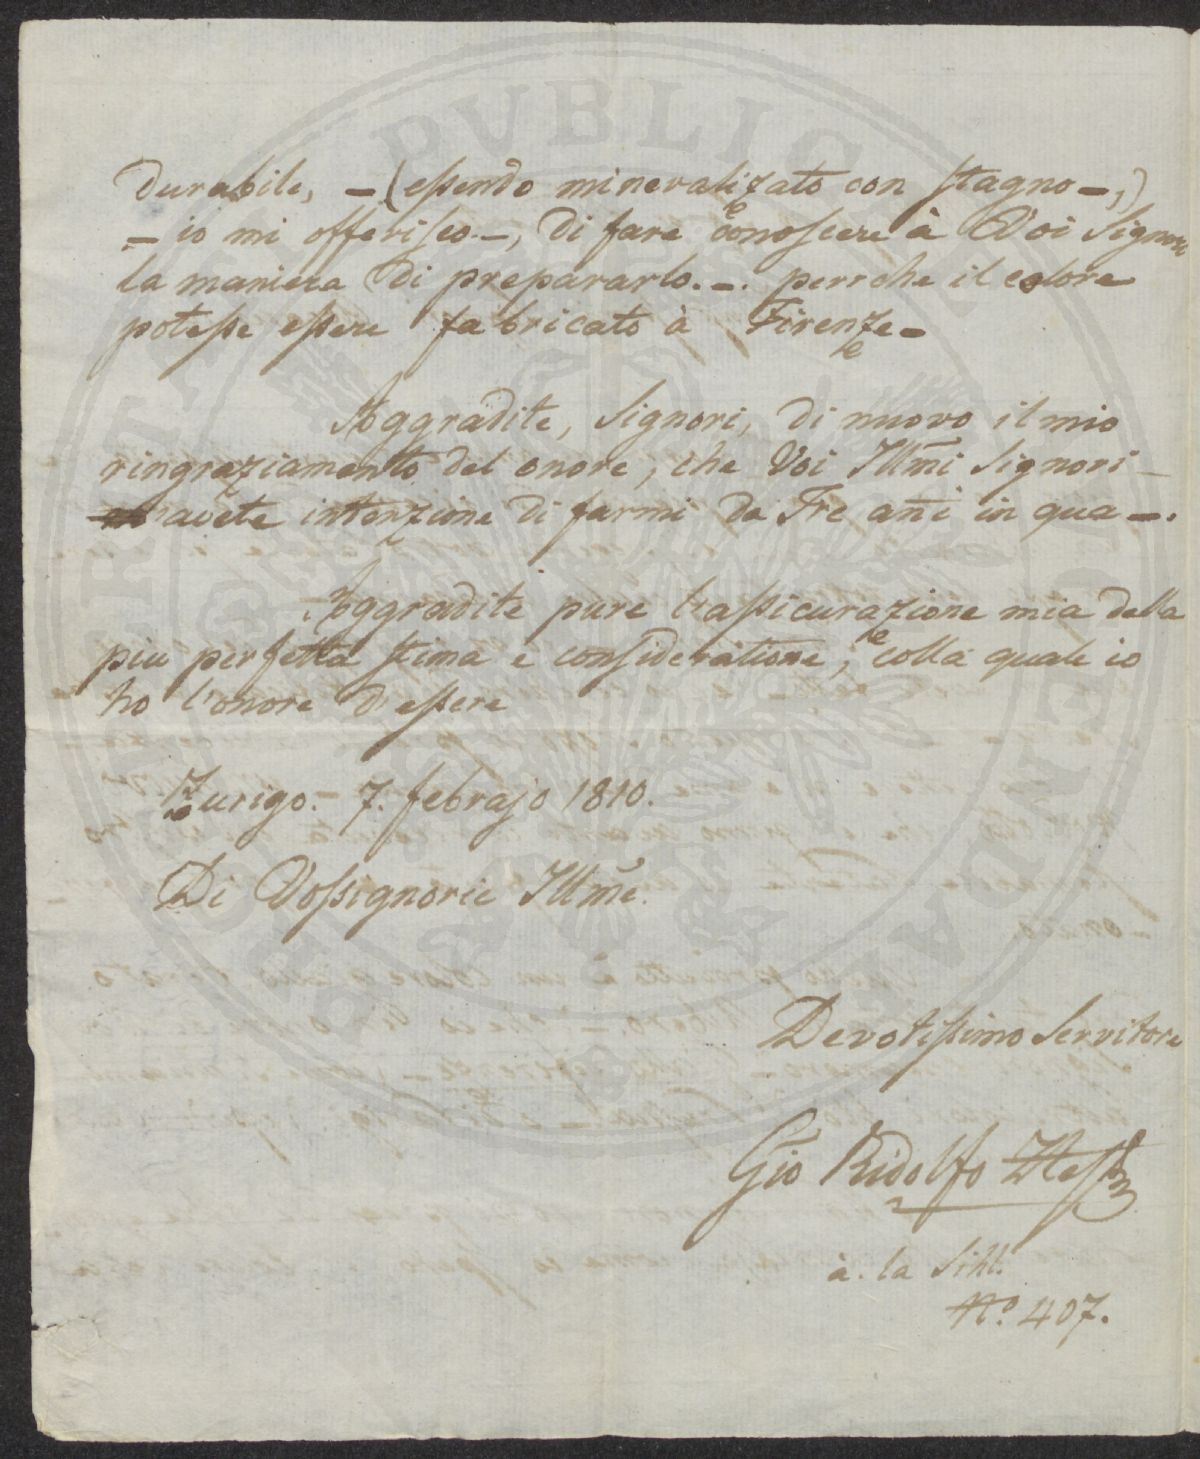 durabile, - (essendo mineralizato con stagno -,)
- io mi offerisco. -, di fare conoscere à Voi Signori
la maniera di prepararlo. -. perrche il colore
potesse essere fabricato à Firenze -
Aggradite, Signori, di nuovo il mio
ringraziamento del onore, che Voi Illmi Signori -
avete intenzione di farmi da Tre anni in qua -.
Aggradite pure l'assicurazione mia della
piu perfetta stima e consideratione, colla quale io
ho l'onore d'essere
Zurigo. - 7. febrajo 1810.
Di Vossignorie Illme.
Devotissimo Servitore
Gio Ridolfo Hess
à. la Sihl.
No. 407.